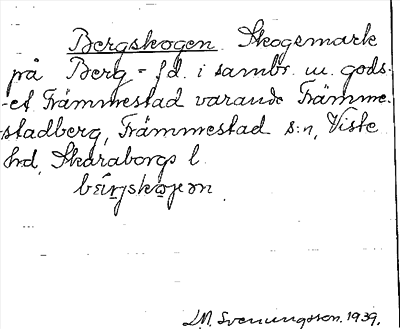 Bergskogen. Skogsmark
på Berg - fd. i sambr. m. gods-
-et Främmestad varande Främme-
stadberg, Främmestad s:n, Viste
hd, Skaraborgs l.
Svenungsson. 1939.